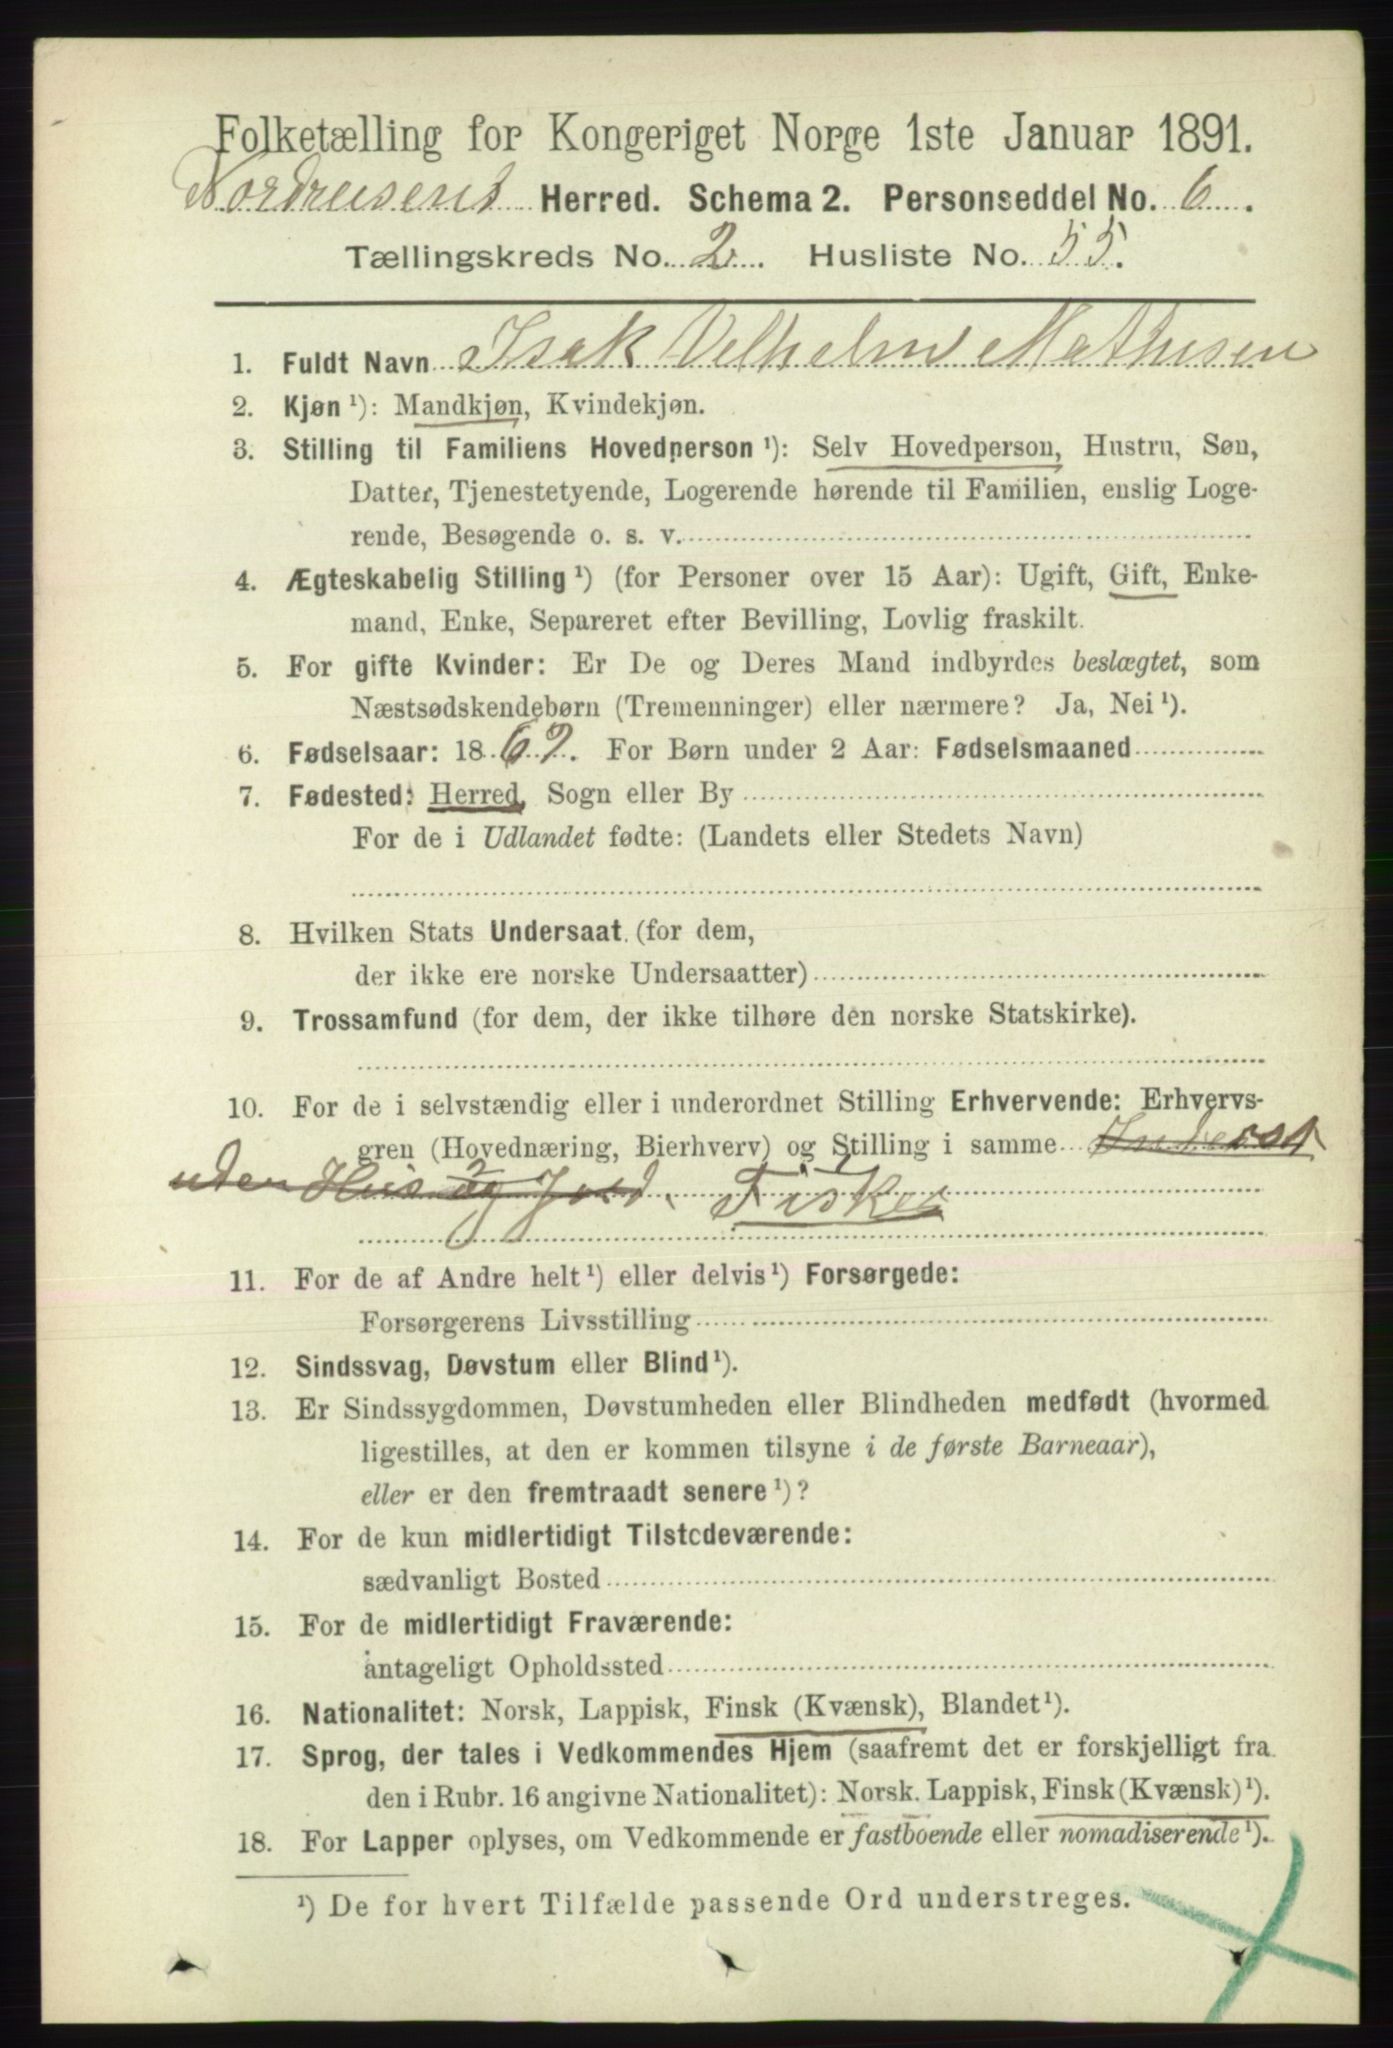 Folketælling for Kongeriget Norge 1ste Januar 1891.
Nordreisens Herred. Schema 2. Personseddel No. 6.
Tællingskreds No. 2. Husliste No. 55.
1. Fuldt Navn Isak Vilhelm Mathisen
2. Kjøn ¹): Mandkjøn, Kvindekjøn.
3. Stilling til Familiens Hovedperson ¹): Selv Hovedperson, Hustru, Søn,
Datter, Tjenestetyende, Logerende hørende til Familien, enslig Loge-
rende, Besøgende o. s. v.
4. Ægteskabelig Stilling ¹) (for Personer over 15 Aar): Ugift, Gift, Enke-
mand, Enke, Separeret efter Bevilling, Lovlig fraskilt.
5. For gifte Kvinder: Er De og Deres Mand indbyrdes beslægtet, som
Næstsødskendebørn (Tremenninger) eller nærmere? Ja, Nei ¹).
6. Fødselsaar: 1869. For Børn under 2 Aar: Fødselsmaaned
7. Fødested: Herred, Sogn eller By
For de i Udlandet fødte: (Landets eller Stedets Navn)
8. Hvilken Stats Undersaat (for dem,
der ikke ere norske Undersaatter)
9. Trossamfund (for dem, der ikke tilhøre den norske Statskirke).
10. For de i selvstændig eller i underordnet Stilling Erhvervende: Erhvervs-
gren (Hovednæring, Bierhverv) og Stilling i samme Inderst
uden Hus og Jord. Fisker
11. For de af Andre helt ¹) eller delvis ¹) Forsørgede:
Forsørgerens Livsstilling
12. Sindssvag, Døvstum eller Blind ¹).
13. Er Sindssygdommen, Døvstumheden eller Blindheden medfødt (hvormed
ligestilles, at den er kommen tilsyne i de første Barneaar),
eller er den fremtraadt senere ¹)?
14. For de kun midlertidigt Tilstedeværende:
sædvanligt Bosted
15. For de midlertidigt Fraværende:
antageligt Opholdssted
16. Nationalitet: Norsk, Lappisk, Finsk (Kvænsk), Blandet ¹).
17. Sprog, der tales i Vedkommendes Hjem (saafremt det er forskjelligt fra
den i Rubr. 16 angivne Nationalitet): Norsk. Lappisk, Finsk (Kvænsk) ¹).
18. For Lapper oplyses, om Vedkommende er fastboende eller nomadiserende ¹).
¹) De for hvert Tilfælde passende Ord understreges.